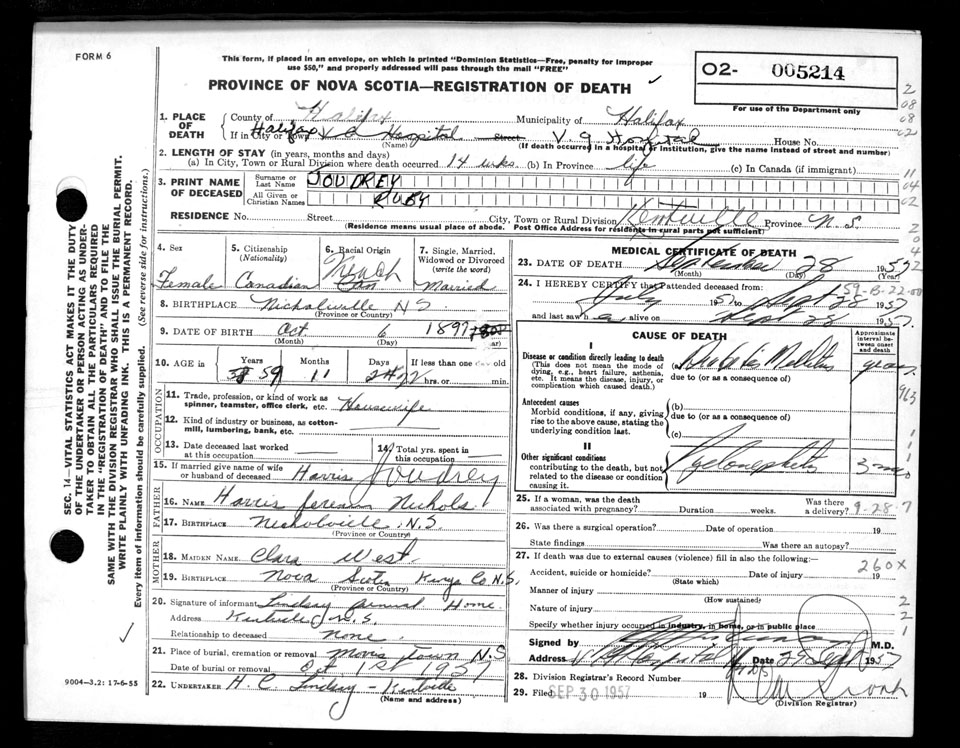 FORM 6
This form, if placed in an envelope, on which is printed "Dominion Statistics—Free, penalty for improper
use $50," and properly addressed will pass through the mail "FREE"
O2- 005214
For use of the Department only
PROVINCE OF NOVA SCOTIA—REGISTRATION OF DEATH
1. PLACE OF DEATH
County of Halifax Municipality of Halifax
If in City or Town Halifax V G Hospital Street V. G Hospital House No.
(Name) (If death occurred in a hospital or institution, give the name instead of street and number)
2. LENGTH OF STAY (in years, months and days)
(a) In City, Town or Rural Division where death occurred 14 wks. (b) In Province life (c) In Canada (if immigrant)
3. PRINT NAME OF DECEASED
Surname or Last Name JOUDREY
All Given or Christian Names RUBY
RESIDENCE No. Street City, Town or Rural Division Kentville Province N.S.
(Residence means usual place of abode. Post Office Address for residents in rural parts not sufficient)
4. Sex Female
5. Citizenship (Nationality) Canadian
6. Racial Origin
7. Single, Married, Widowed or Divorced (write the word) Married
8. BIRTHPLACE Nicholsville NS
(Province or Country)
9. DATE OF BIRTH Oct 6 1897
(Month) (Day) (Year)
10. AGE in Years 59 Months 11 Days 22 If less than one day old hrs. or min.
OCCUPATION
11. Trade, profession, or kind of work as spinner, teamster, office clerk, etc. Housewife
12. Kind of industry or business, as cotton-mill, lumbering, bank, etc.
13. Date deceased last worked at this occupation
14. Total yrs. spent in this occupation
15. If married give name of wife or husband of deceased Harris Joudrey
FATHER
16. NAME Harris Nichols
17. BIRTHPLACE Nicholville N.S
(Province or Country)
MOTHER
18. MAIDEN NAME Clara West
19. BIRTHPLACE Nova Scotia Kings Co N.S.
(Province or Country)
20. Signature of informant Lindsay Funeral Home
Address Kentville N.S.
Relationship to deceased None
21. Place of burial, cremation or removal Morristown N.S
Date of burial or removal Oct 1st 1957
22. UNDERTAKER H. C. Lindsay - Kentville
(Name and address)
MEDICAL CERTIFICATE OF DEATH
23. DATE OF DEATH September 28 1957
(Month) (Day) (Year)
24. I HEREBY CERTIFY that I attended deceased from:
59-B-22-00
July 1957 to Sept 28 1957
and last saw h alive on Sept 28 1957
CAUSE OF DEATH
Approximate interval between onset and death
I
Disease or condition directly leading to death
(This does not mean the mode of dying, e.g., heart failure, asthenia, etc. It means the disease, injury, or complication which caused death.)
(a) Diabetes Mellitus years
due to (or as a consequence of)
Antecedent causes
Morbid conditions, if any, giving rise to the above cause, stating the underlying condition last.
(b)
due to (or as a consequence of)
(c)
II
Other significant conditions
contributing to the death, but not related to the disease or condition causing it.
Pyelonephritis 3 mos
25. If a woman, was the death associated with pregnancy? Duration weeks. Was there a delivery? 9-28-7
26. Was there a surgical operation? Date of operation 19
State findings Was there an autopsy?
27. If death was due to external causes (violence) fill in also the following:
260X
Accident, suicide or homicide? Date of injury 19
(State which)
Manner of injury
(How sustained)
Nature of injury
Specify whether injury occurred in industry, in home, or in public place
Signed by M.D.
Address V G Hospital Date 29 Sept 1957
28. Division Registrar's Record Number
29. Filed SEP 30 1957 19
(Division Registrar)
SEC. 14—VITAL STATISTICS ACT MAKES IT THE DUTY
OF THE UNDERTAKER OR PERSON ACTING AS UNDER-
TAKER TO OBTAIN ALL THE PARTICULARS REQUIRED
IN THE "REGISTRATION OF DEATH" AND TO FILE THE
SAME WITH THE DIVISION REGISTRAR WHO SHALL ISSUE THE BURIAL PERMIT.
WRITE PLAINLY WITH UNFADING INK. THIS IS A PERMANENT RECORD.
Every item of information should be carefully supplied. (See reverse side for instructions.)
9004-3.2: 17-6-55